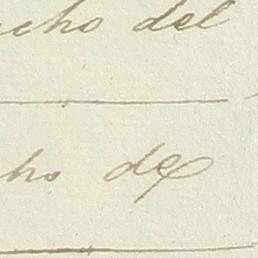 cho del
ho del